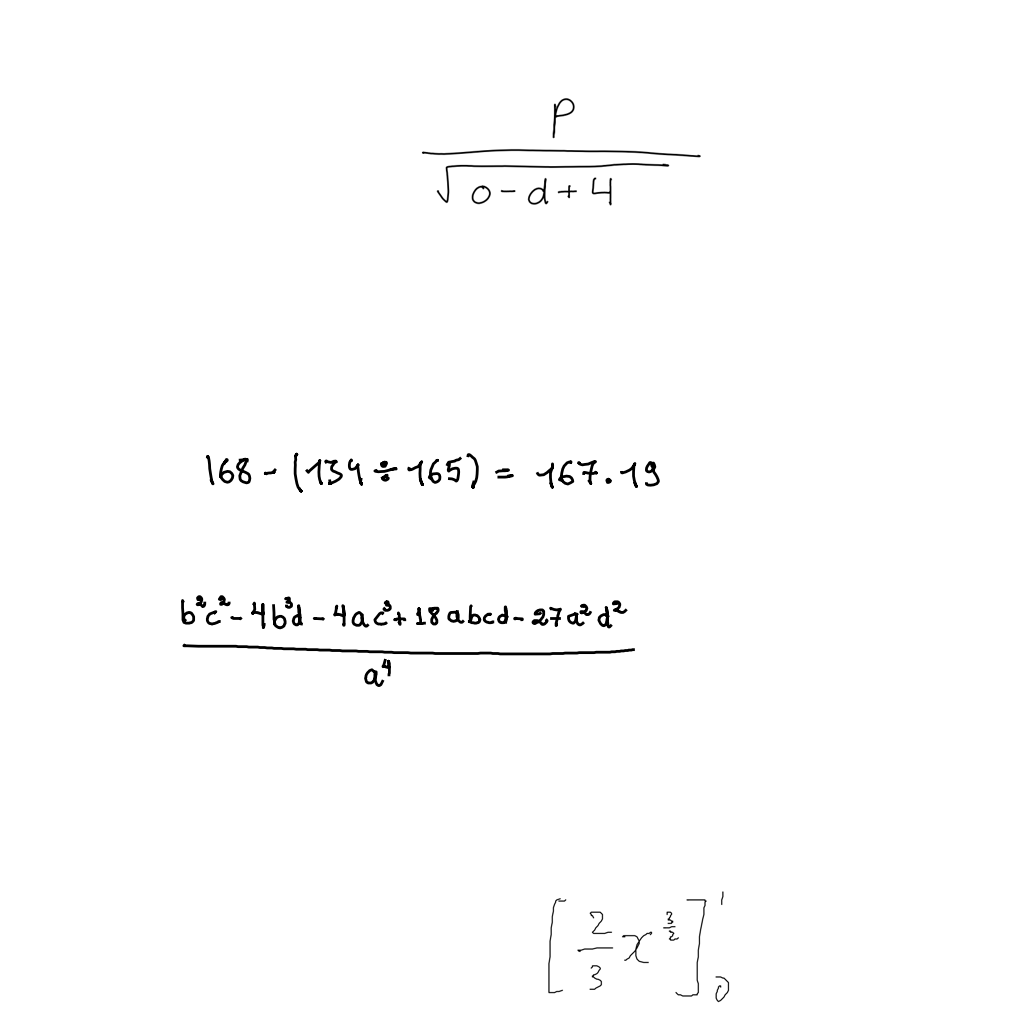 \frac{p}{\sqrt{o-d+4}}
168 - (134 ÷ 165) = 167.19
\frac{b^2c^2 - 4b^3d - 4ac^3 + 18abcd - 27a^2d^2}{a^4}
\left[\frac{2}{3}x^{\frac{3}{2}}\right]_0^1